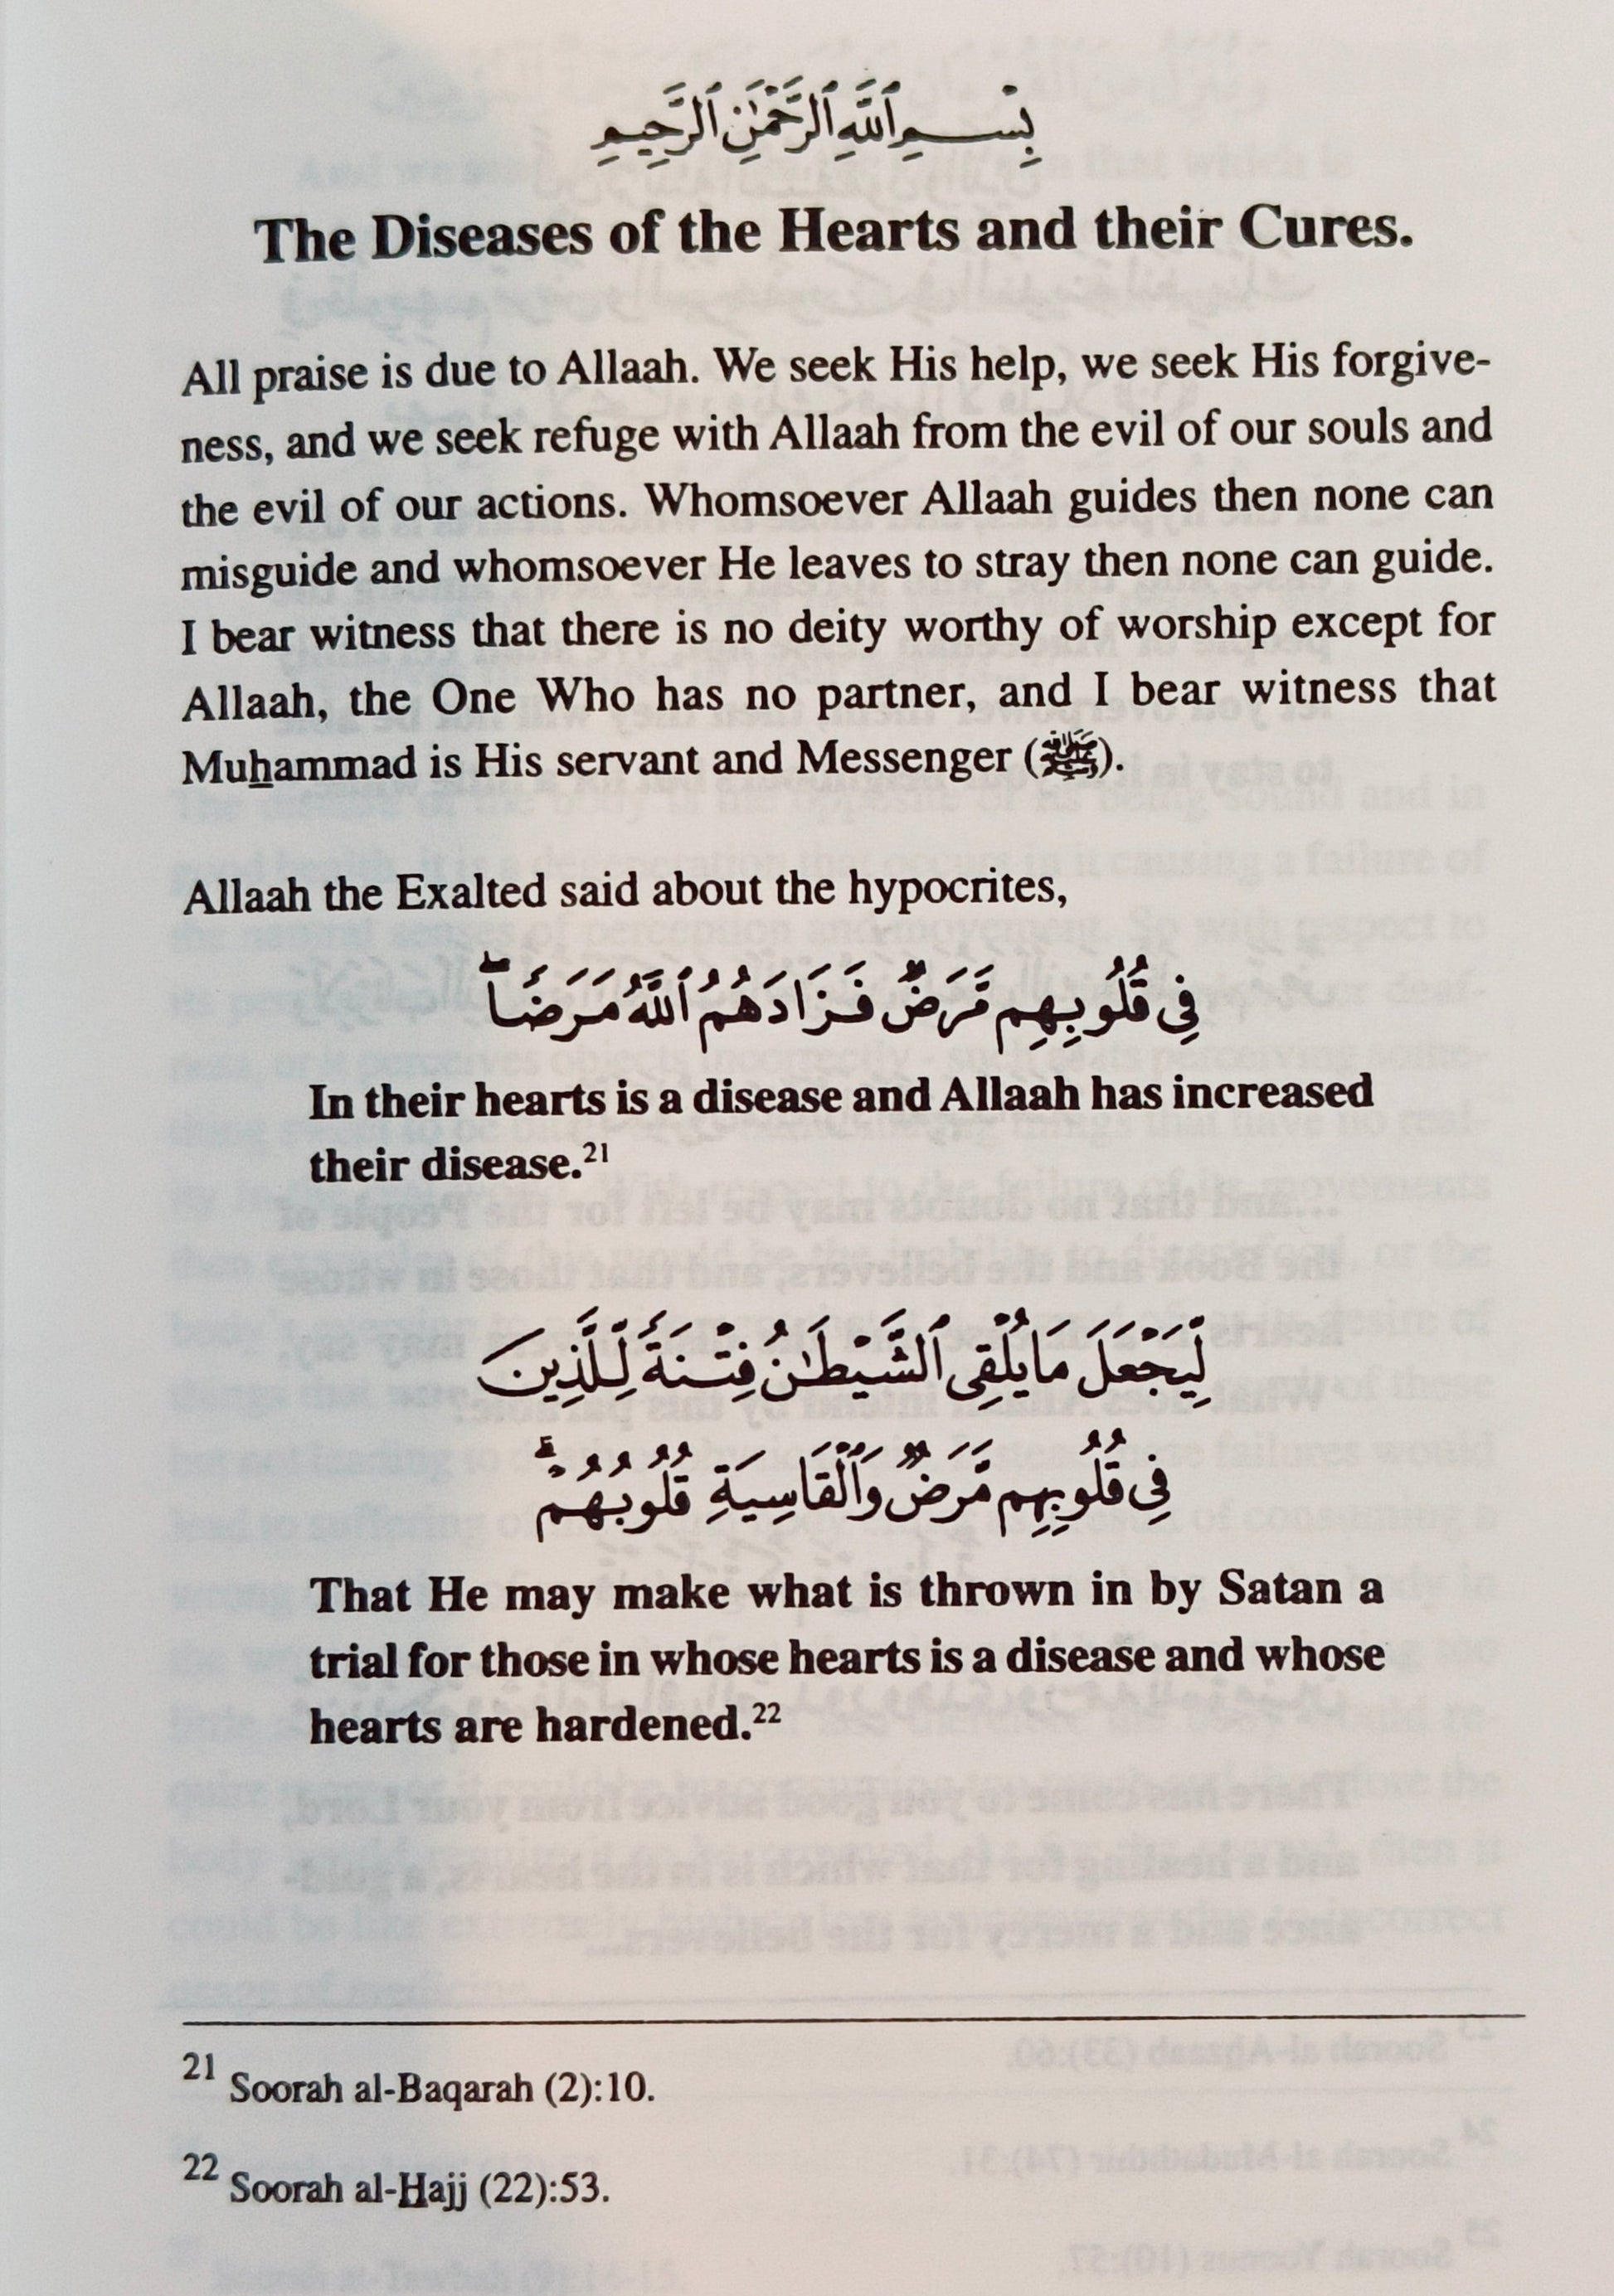 بِسْمِ ٱللَّهِ ٱلرَّحْمَٰنِ ٱلرَّحِيمِ
The Diseases of the Hearts and their Cures.
All praise is due to Allaah. We seek His help, we seek His forgive-
ness, and we seek refuge with Allaah from the evil of our souls and
the evil of our actions. Whomsoever Allaah guides then none can
misguide and whomsoever He leaves to stray then none can guide.
I bear witness that there is no deity worthy of worship except for
Allaah, the One Who has no partner, and I bear witness that
Muḥammad is His servant and Messenger (ﷺ).
Allaah the Exalted said about the hypocrites,
فِى قُلُوبِهِم مَّرَضٌ فَزَادَهُمُ ٱللَّهُ مَرَضًا ۖ
In their hearts is a disease and Allaah has increased
their disease.21
لِّيَجْعَلَ مَا يُلْقِى ٱلشَّيْطَٰنُ فِتْنَةً لِّلَّذِينَ
فِى قُلُوبِهِم مَّرَضٌ وَٱلْقَاسِيَةِ قُلُوبُهُمْ ۗ
That He may make what is thrown in by Satan a
trial for those in whose hearts is a disease and whose
hearts are hardened.22
21 Soorah al-Baqarah (2):10.
22 Soorah al-Ḥajj (22):53.